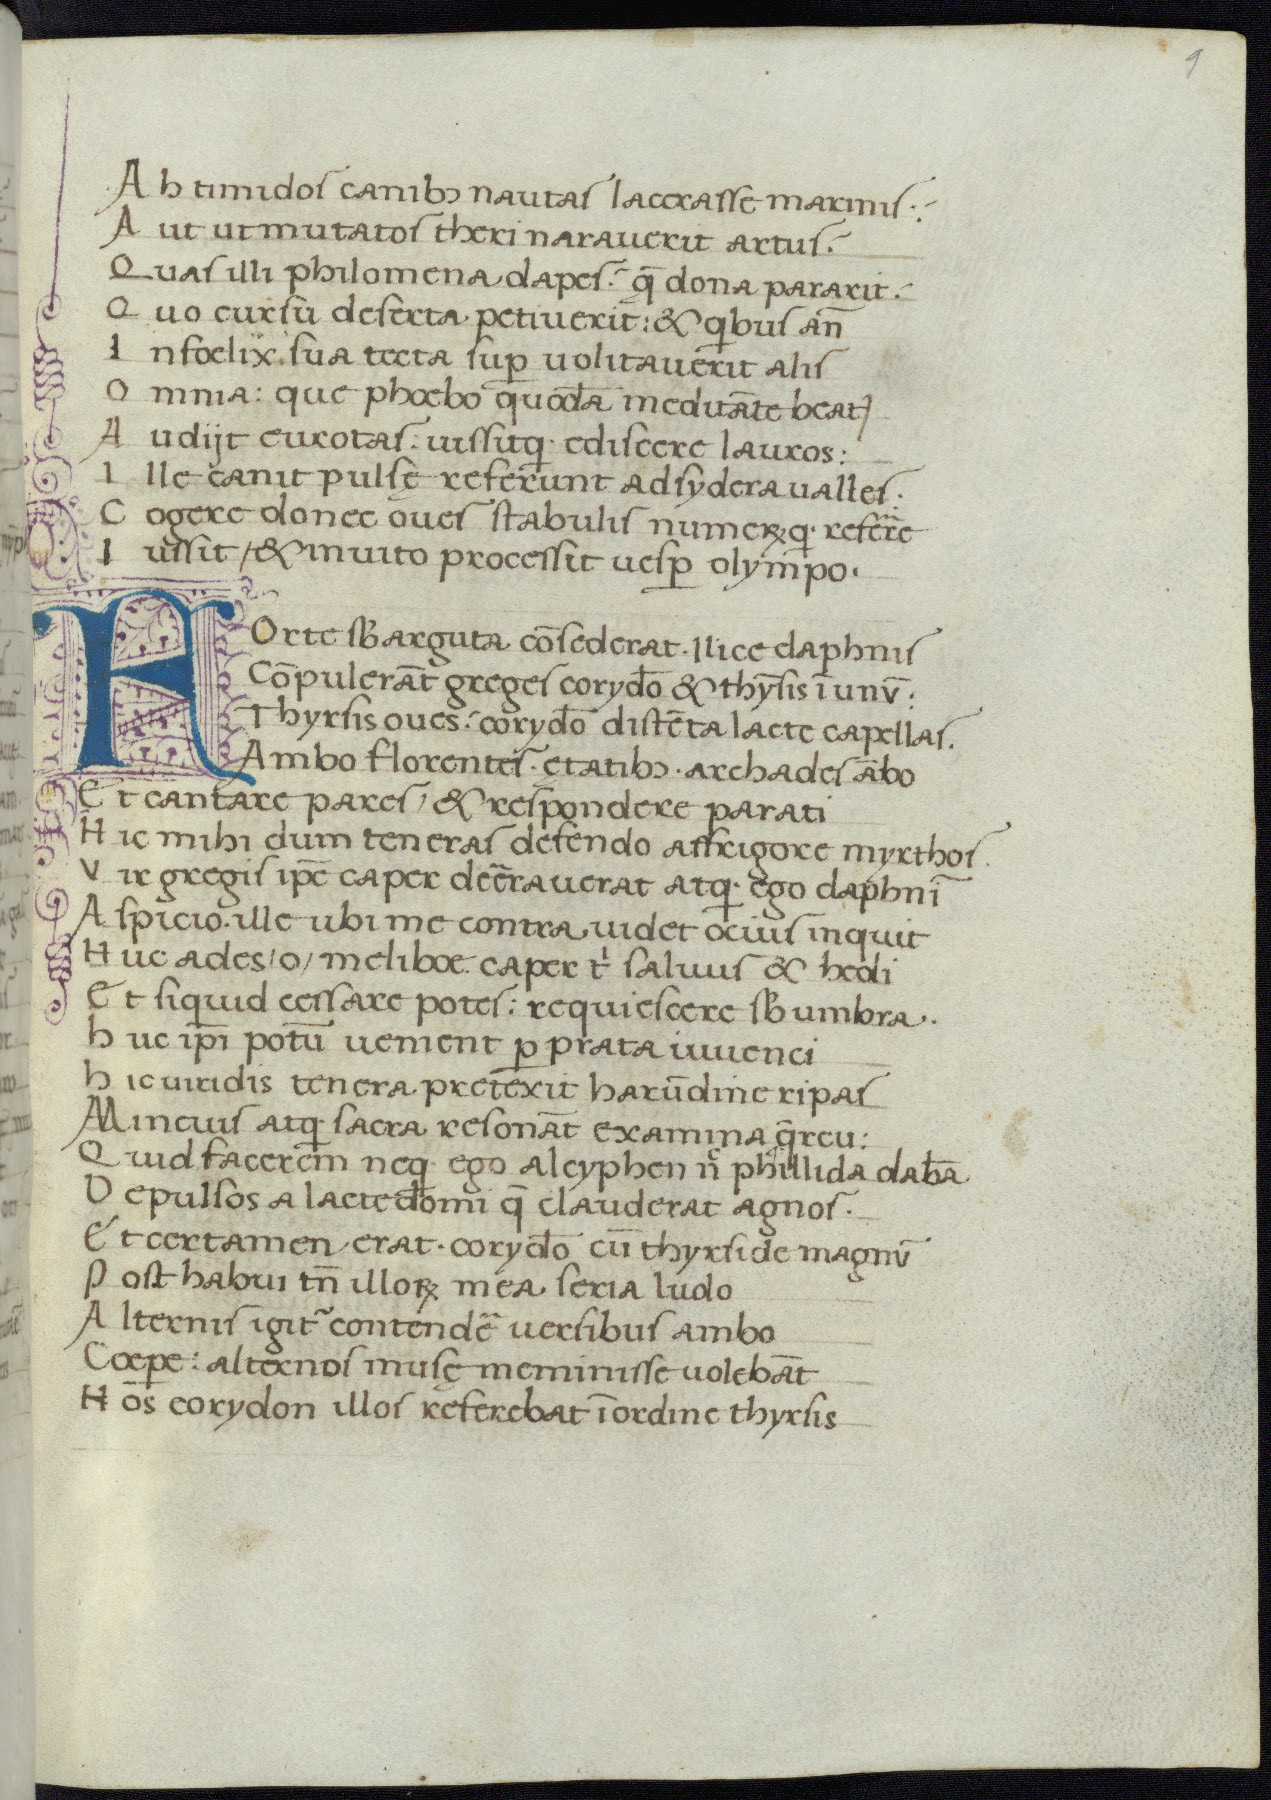 9
Ah timidos canibꝫ nautas lacerasse marinis.:
Aut ut mutatos theri naraverit artus.
Quas illi philomena dapes. q̄ dona pararit.
Quo cursu deserta petiverit: & qibus ān
Infoelix sua tecta suꝑ volitaverit alis
Omnia: que phoebo quōdā meditāte beatꝰ
Audijt eurotas. iussitqꝫ ediscere lauros:
Ille canit pulsę referunt ad sydera valles.
Cogere donec oves stabulis numerꝝqꝫ referre
Iussit / & invito processit vesꝑ olympo.
HOrte sƀ arguta cōsederat. Ilice daphnis
Cōpulerāt greges corydō & thyrsis ī unū:
Thyrsis oves: corydō distēta lacte capellas.
Ambo florentes. ętatibꝫ. archades ābo
Et cantare pares / & respondere parati
Hic mihi dum teneras defendo affrigore myrthos.
Vir gregis ip̄e caper deerraverat atqꝫ ego daphnī
Aspicio. ille ubi me contra videt ocius inquit
Huc ades / o / meliboe. caper tⁱ salvus & hedi
Et siquid cessare potes: requiescere sƀ umbra.
huc ip̄i potū venient ꝑ prata iuvenci
hic viridis tenera pretexit harūdine ripas
Mincius atqꝫ sacra resonāt examina q̄rcu:
Quid facerem neqꝫ ego alcyphen n̄ phillida dabā
Depulsos a lacte domi q̄ clauderat agnos.
Et certamen erat. corydō cū thyrside magnū
Post habui tn̄ illoꝝ mea seria ludo
Alternis igit᷑ contendē versibus ambo
Coepe: alternos musę meminisse volebāt
Hos corydon illos referebat ī ordine thyrsis